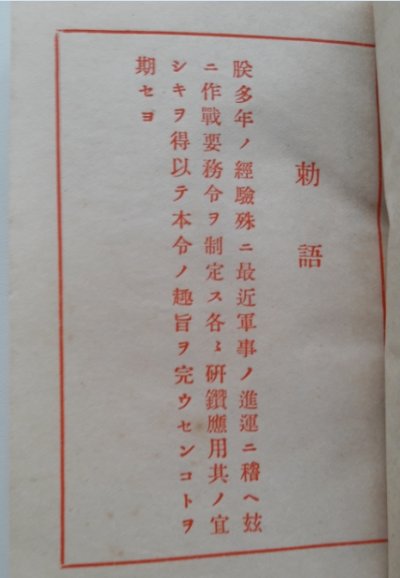 勅語
朕多年ノ經驗殊ニ最近軍事ノ進運ニ稽ヘ玆
ニ作戰要務令ヲ制定ス各〻硏鑽應用其ノ宜
シキヲ得以テ本令ノ趣旨ヲ完ウセンコトヲ
期セヨ